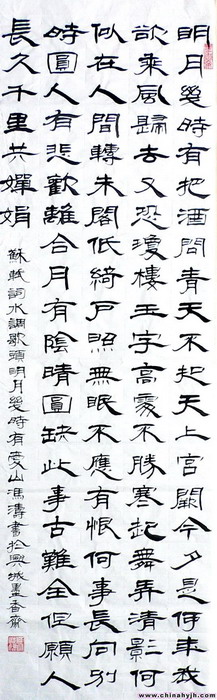 明月幾時有把酒問青天不知天上宮闕今夕是何年我
欲乘風歸去又恐瓊樓玉宇高處不勝寒起舞弄清影何
似在人間轉朱閣低綺戶照無眠不應有恨何事長向別
時圓人有悲歡離合月有陰晴圓缺此事古難全但願人
長久千里共嬋娟
蘇軾詞水調歌頭明月幾時有蒙山馮濤書於興城墨香齋
www.chinahyjh.com